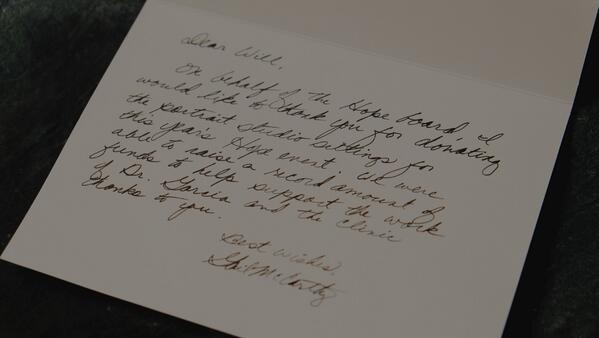 Dear Will,
On behalf of the Hope board, I
would like to thank you for donating
the portrait studio sittings for
this year's Hope event. We were
able to raise a record amount of
funds to help support the work
of Dr. Garcia and the clinic
thanks to you.
Best wishes,
Gail McCarthy